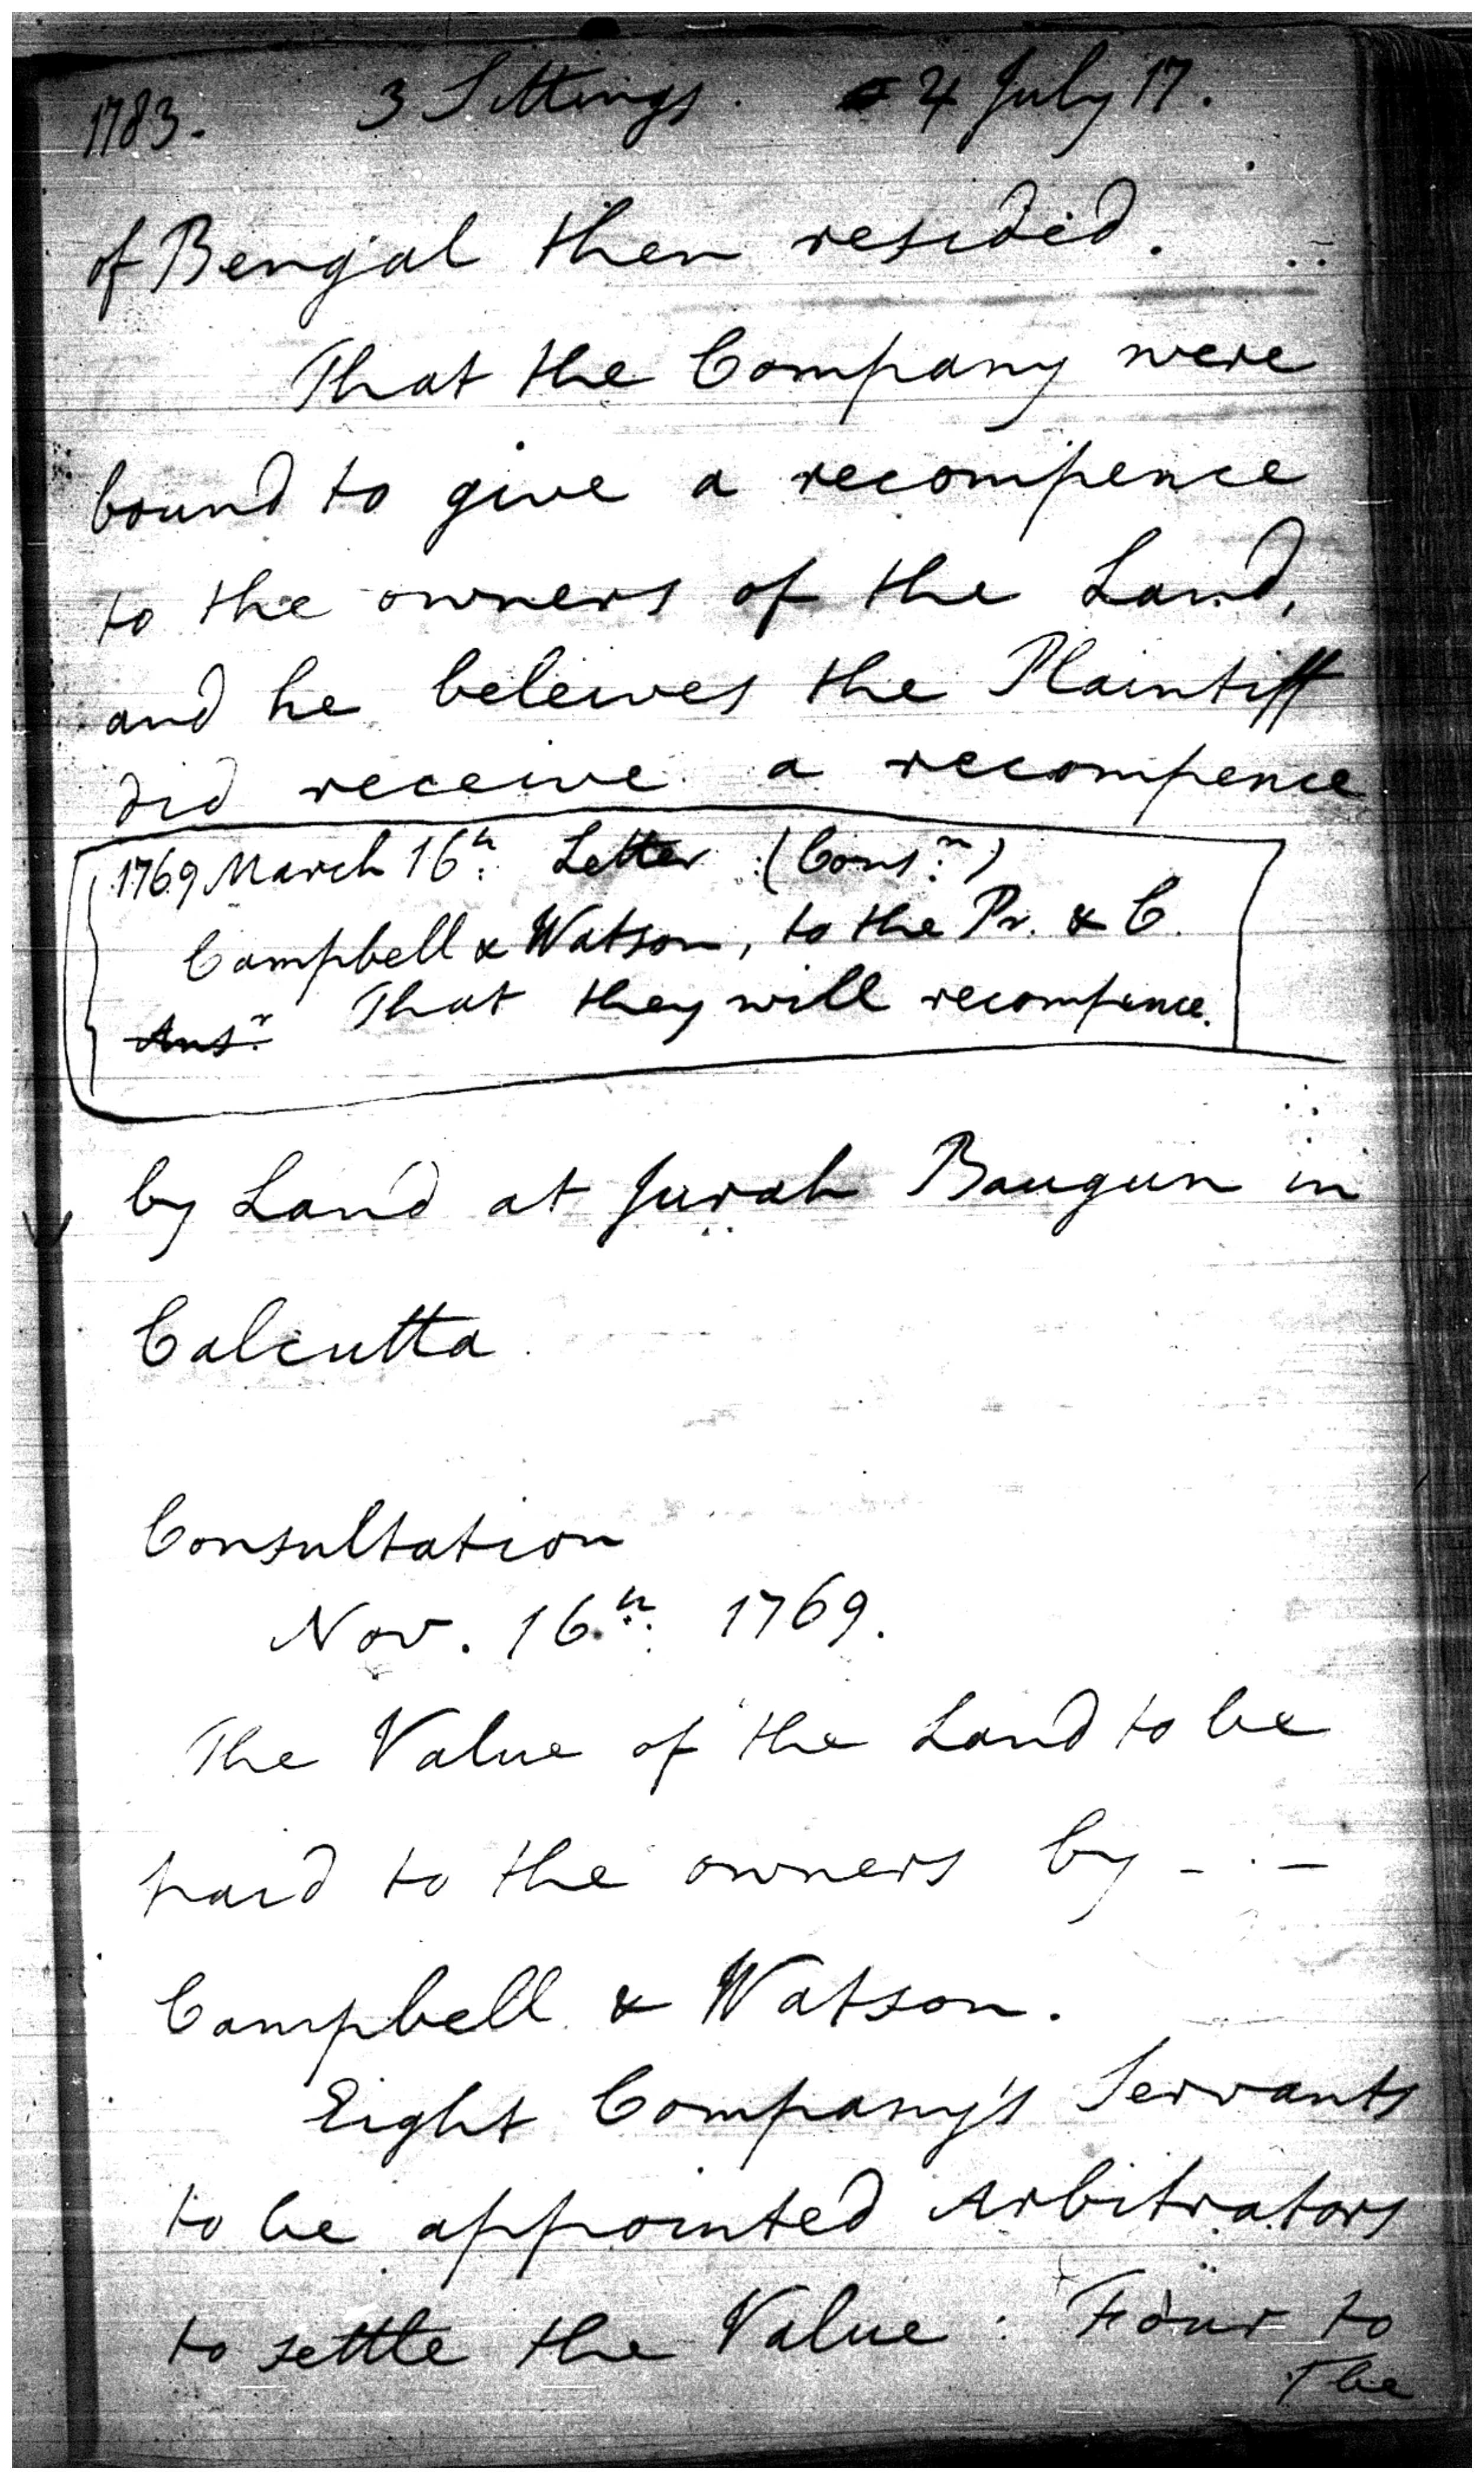 1783. 3 Sittings. 4 July 17.
of Bengal then resided.
That the Company were
bound to give a recompence
to the owners of the Land,
and he beleives the Plaintiff
did receive a recompence
1769 March 16th. Letter (Consn.)
Campbell & Watson, to the Pr. & C.
That they will recompence.
Ansr.
by Land at Jurah Baugun in
Calcutta
Consultation
Nov. 16th. 1769.
The Value of the Land to be
paid to the owners by - . -
Campbell & Watson.
Eight Company's Servants
to be appointed Arbitrators
to settle the Value : Four to